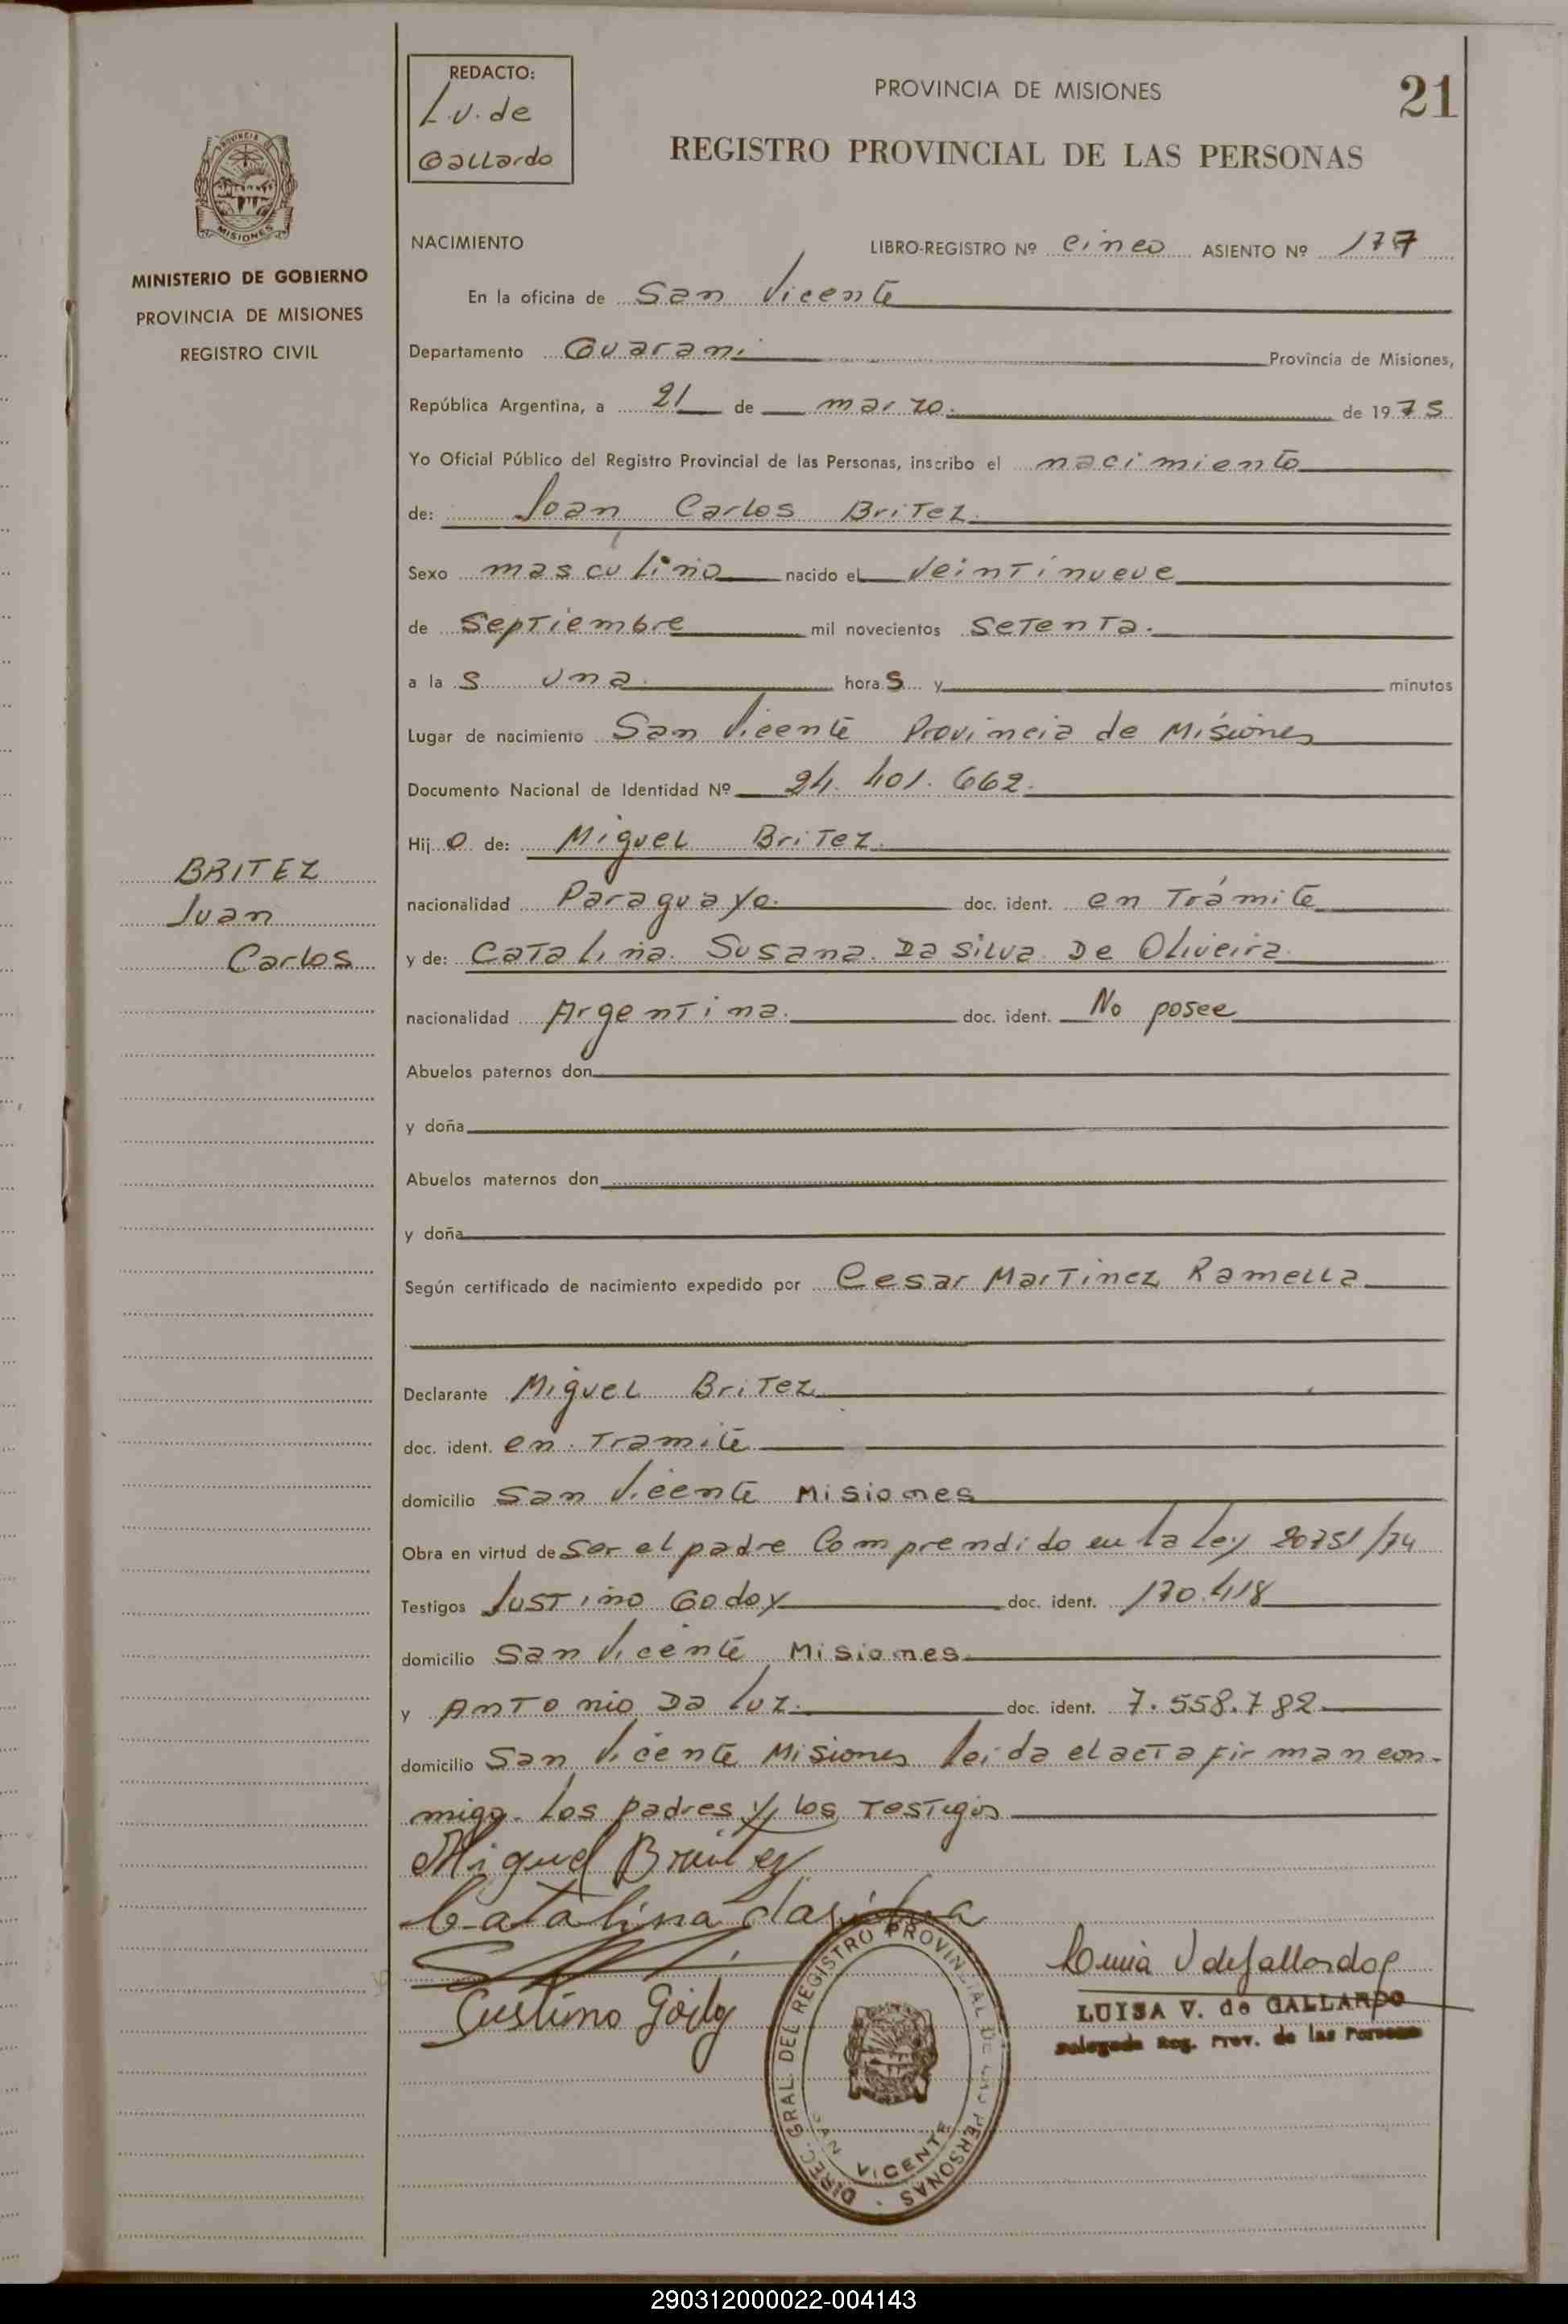 REDACTO:
L.V. de
Gallardo
PROVINCIA DE MISIONES
21
REGISTRO PROVINCIAL DE LAS PERSONAS
PROVINCIA
MISIONES
MINISTERIO DE GOBIERNO
PROVINCIA DE MISIONES
REGISTRO CIVIL
NACIMIENTO LIBRO-REGISTRO Nº cinco ASIENTO Nº 177
En la oficina de San Vicente
Departamento Guarani Provincia de Misiones,
República Argentina, a 21 de marzo. de 1975
Yo Oficial Público del Registro Provincial de las Personas, inscribo el nacimiento
de: Juan Carlos Britez.
Sexo masculino nacido el veintinueve
de Septiembre mil novecientos setenta.
a la s una. hora s y minutos
Lugar de nacimiento San Vicente Provincia de Misiones
Documento Nacional de Identidad Nº 24.401.662.
Hij o de: Miguel Britez.
BRITEZ
Juan
Carlos
nacionalidad Paraguayo. doc. ident. en Trámite
y de: Catalina. Susana. Da Silva De Oliveira.
nacionalidad Argentina. doc. ident. No posee
Abuelos paternos don
y doña
Abuelos maternos don
y doña
Según certificado de nacimiento expedido por Cesar Martinez Ramella
Declarante Miguel Britez
doc. ident. en Tramite
domicilio San Vicente Misiones
Obra en virtud de ser el padre Comprendido en la ley 20751/74
Testigos Justino Godoy doc. ident. 170.418
domicilio San Vicente Misiones.
y Antonio Da Luz. doc. ident. 7.558.782
domicilio San Vicente Misiones leida el acta firman con-
migo. los padres y los Testigos
Miguel Britez
Catalina dasilva
Justino Godoy
LUISA V. de GALLARDO
Delegada Reg. Prov. de las Personas
DIREC. GRAL. DEL REGISTRO PROVINCIAL DE LAS PERSONAS
SAN VICENTE
290312000022-004143